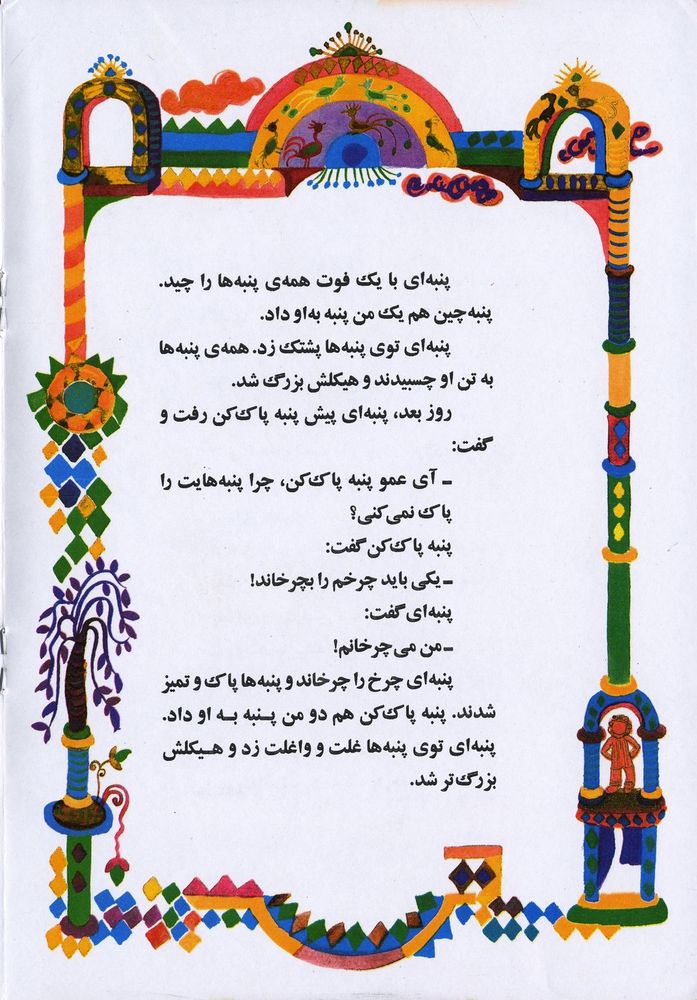 پنبه‌ای با یک فوت همه‌ی پنبه‌ها را چید.
پنبه‌چین هم یک من پنبه به‌او داد.
پنبه‌ای توی پنبه‌ها پشتک زد. همه‌ی پنبه‌ها
به تن او چسبیدند و هیکلش بزرگ شد.
روز بعد، پنبه‌ای پیش پنبه پاک‌کن رفت و
گفت:
ـ آی عمو پنبه پاک‌کن، چرا پنبه‌هایت را
پاک نمی‌کنی؟
پنبه پاک‌کن گفت:
ـ یکی باید چرخم را بچرخاند!
پنبه‌ای گفت:
ـ من می‌چرخانم!
پنبه‌ای چرخ را چرخاند و پنبه‌ها پاک و تمیز
شدند. پنبه پاک‌کن هم دو من پـنبه بـه او داد.
پنبه‌ای توی پنبه‌ها غلت و واغلت زد و هـیکلش
بزرگ‌تر شد.